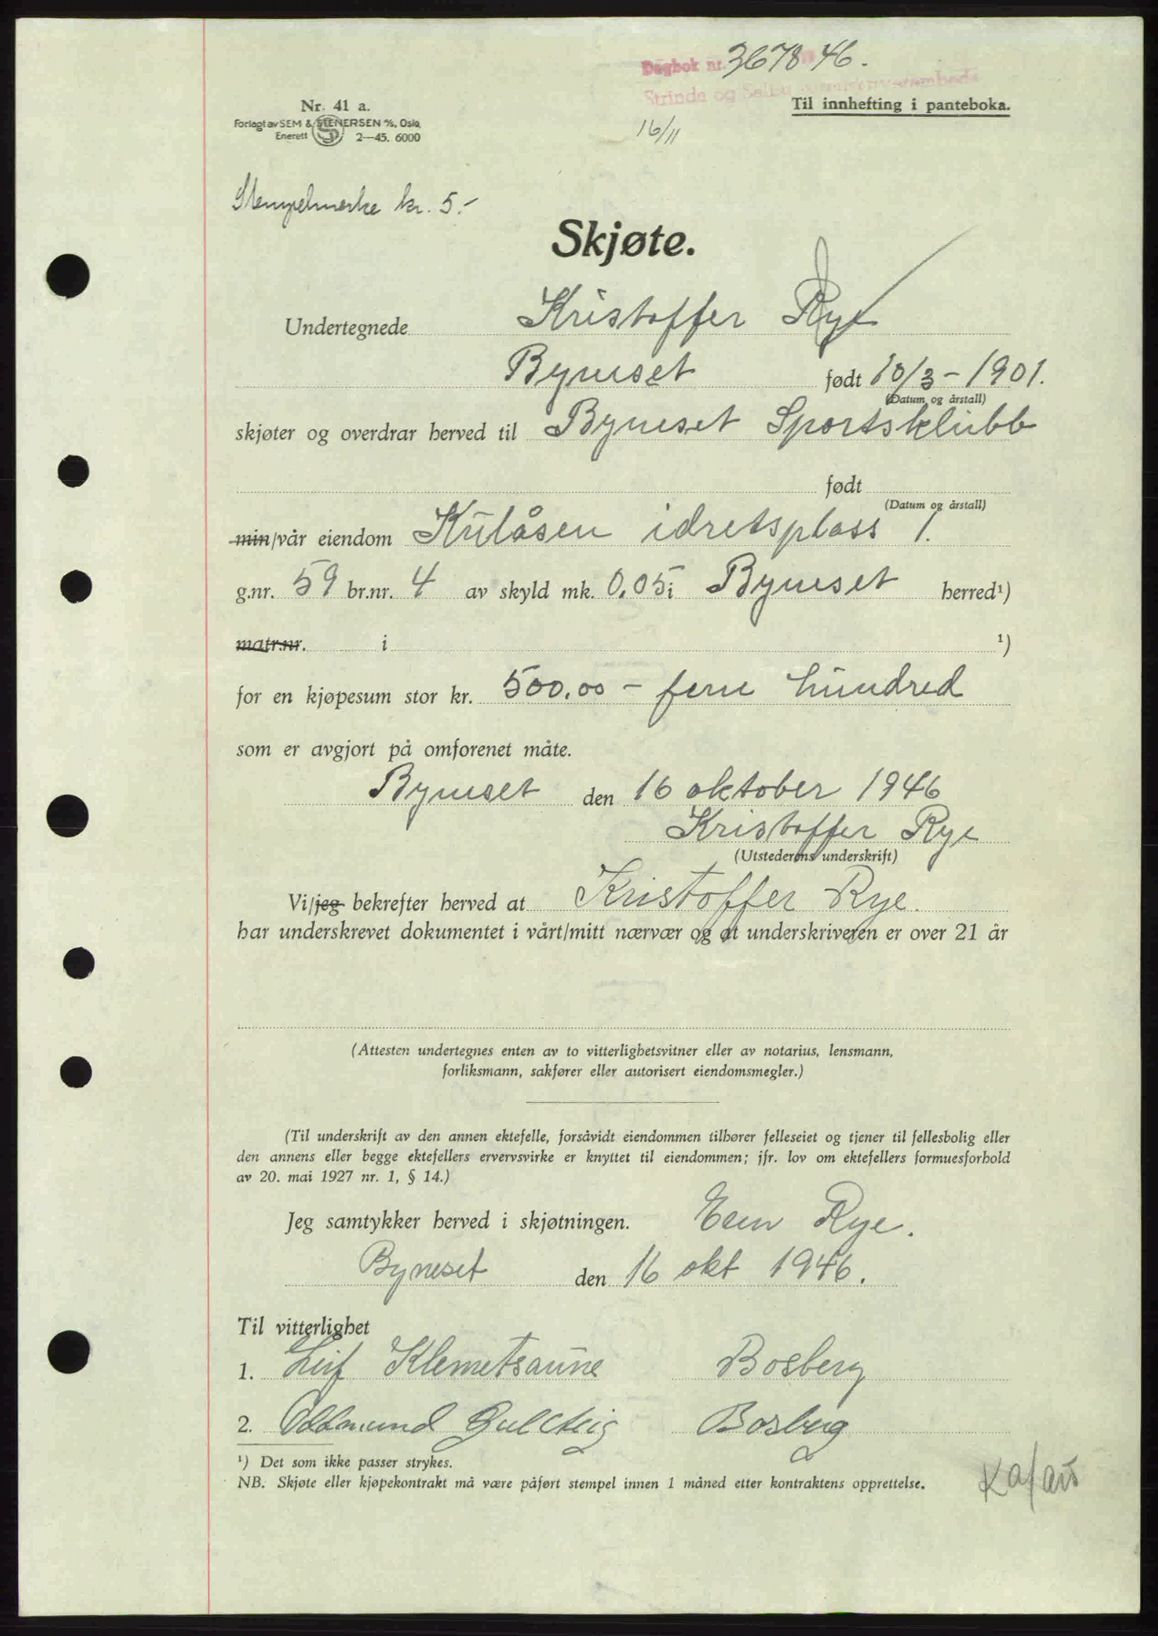 Dagbok nr. 3678 46.
Strinda og Selbu sorenskriverembede
Nr. 41 a.
Til innhefting i panteboka.
Forlagt av SEM & STENERSEN A/S, Oslo
Enerett 2—45. 6000
16/11
Stempelmerke kr. 5.-
Skjøte.
Undertegnede Kristoffer Rye
Byneset født 10/3 - 1901.
(Datum og årstall)
skjøter og overdrar herved til Byneset Sportsklubb
født
(Datum og årstall)
min/vår eiendom Kulåsen idretsplass 1.
g.nr. 59 br.nr. 4 av skyld mk. 0.05 i Byneset herred¹)
matr.nr. i ¹)
for en kjøpesum stor kr. 500.00 - fem hundred
som er avgjort på omforenet måte.
Byneset den 16 oktober 1946
Kristoffer Rye
(Utstederens underskrift)
Vi/jeg bekrefter herved at Kristoffer Rye.
har underskrevet dokumentet i vårt/mitt nærvær og at underskriveren er over 21 år
(Attesten undertegnes enten av to vitterlighetsvitner eller av notarius, lensmann,
forliksmann, sakfører eller autorisert eiendomsmegler.)
(Til underskrift av den annen ektefelle, forsåvidt eiendommen tilhører felleseiet og tjener til fellesbolig eller
den annens eller begge ektefellers ervervsvirke er knyttet til eiendommen; jfr. lov om ektefellers formuesforhold
av 20. mai 1927 nr. 1, § 14.)
Jeg samtykker herved i skjøtningen. Rye.
Byneset den 16 okt 1946.
Til vitterlighet
1. Leif Klemetsaune Bosberg
2. Oddmund Bosberg
¹) Det som ikke passer strykes.
NB. Skjøte eller kjøpekontrakt må være påført stempel innen 1 måned etter kontraktens opprettelse.